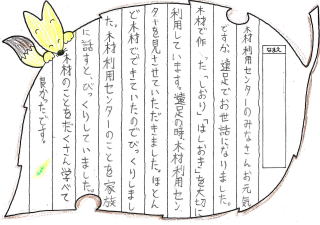 なまえ
木材利用センターのみなさんお元気
ですか。遠足でお世話になりました。
木材で作った「しおり」「はしおき」を大切に
利用しています。遠足の時、木材利用セン
ターを見させていただきました。ほとん
ど木材でできていたのでびっくりしまし
た。木材利用センターのことを家族
に話すと、びっくりしていました。
木材のことをたくさん学べて
良かったです。